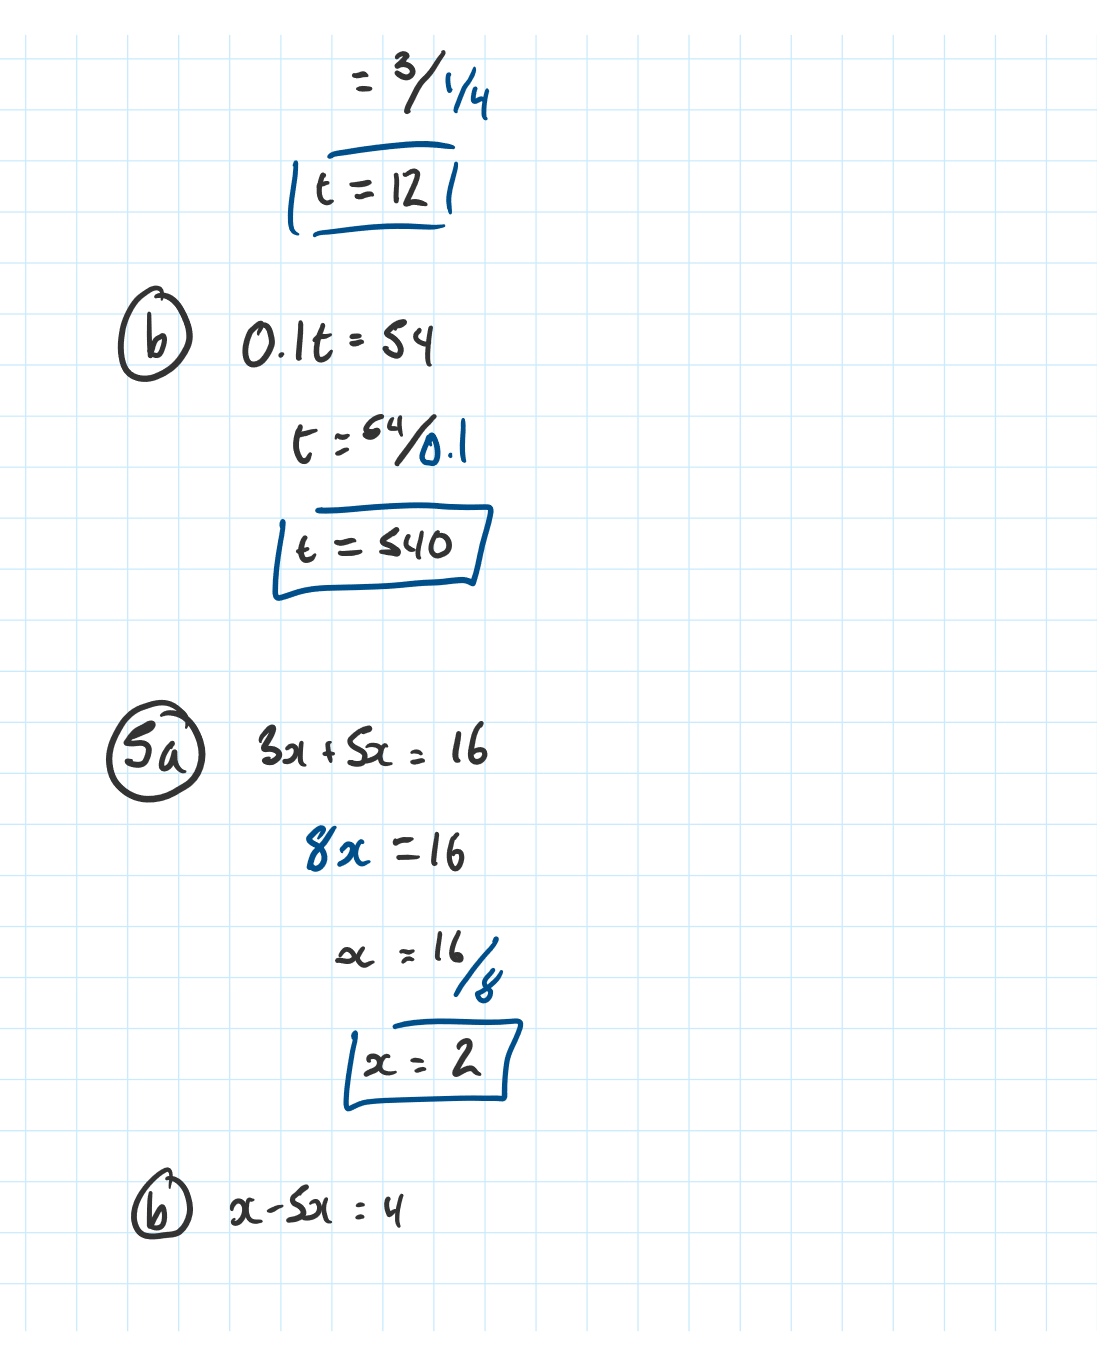 = 3/1/4
t = 12
b 0.1t = 54
t = 54/0.1
t = 540
5a 3x + 5x = 16
8x = 16
x = 16/8
x = 2
b x - 5x = 4